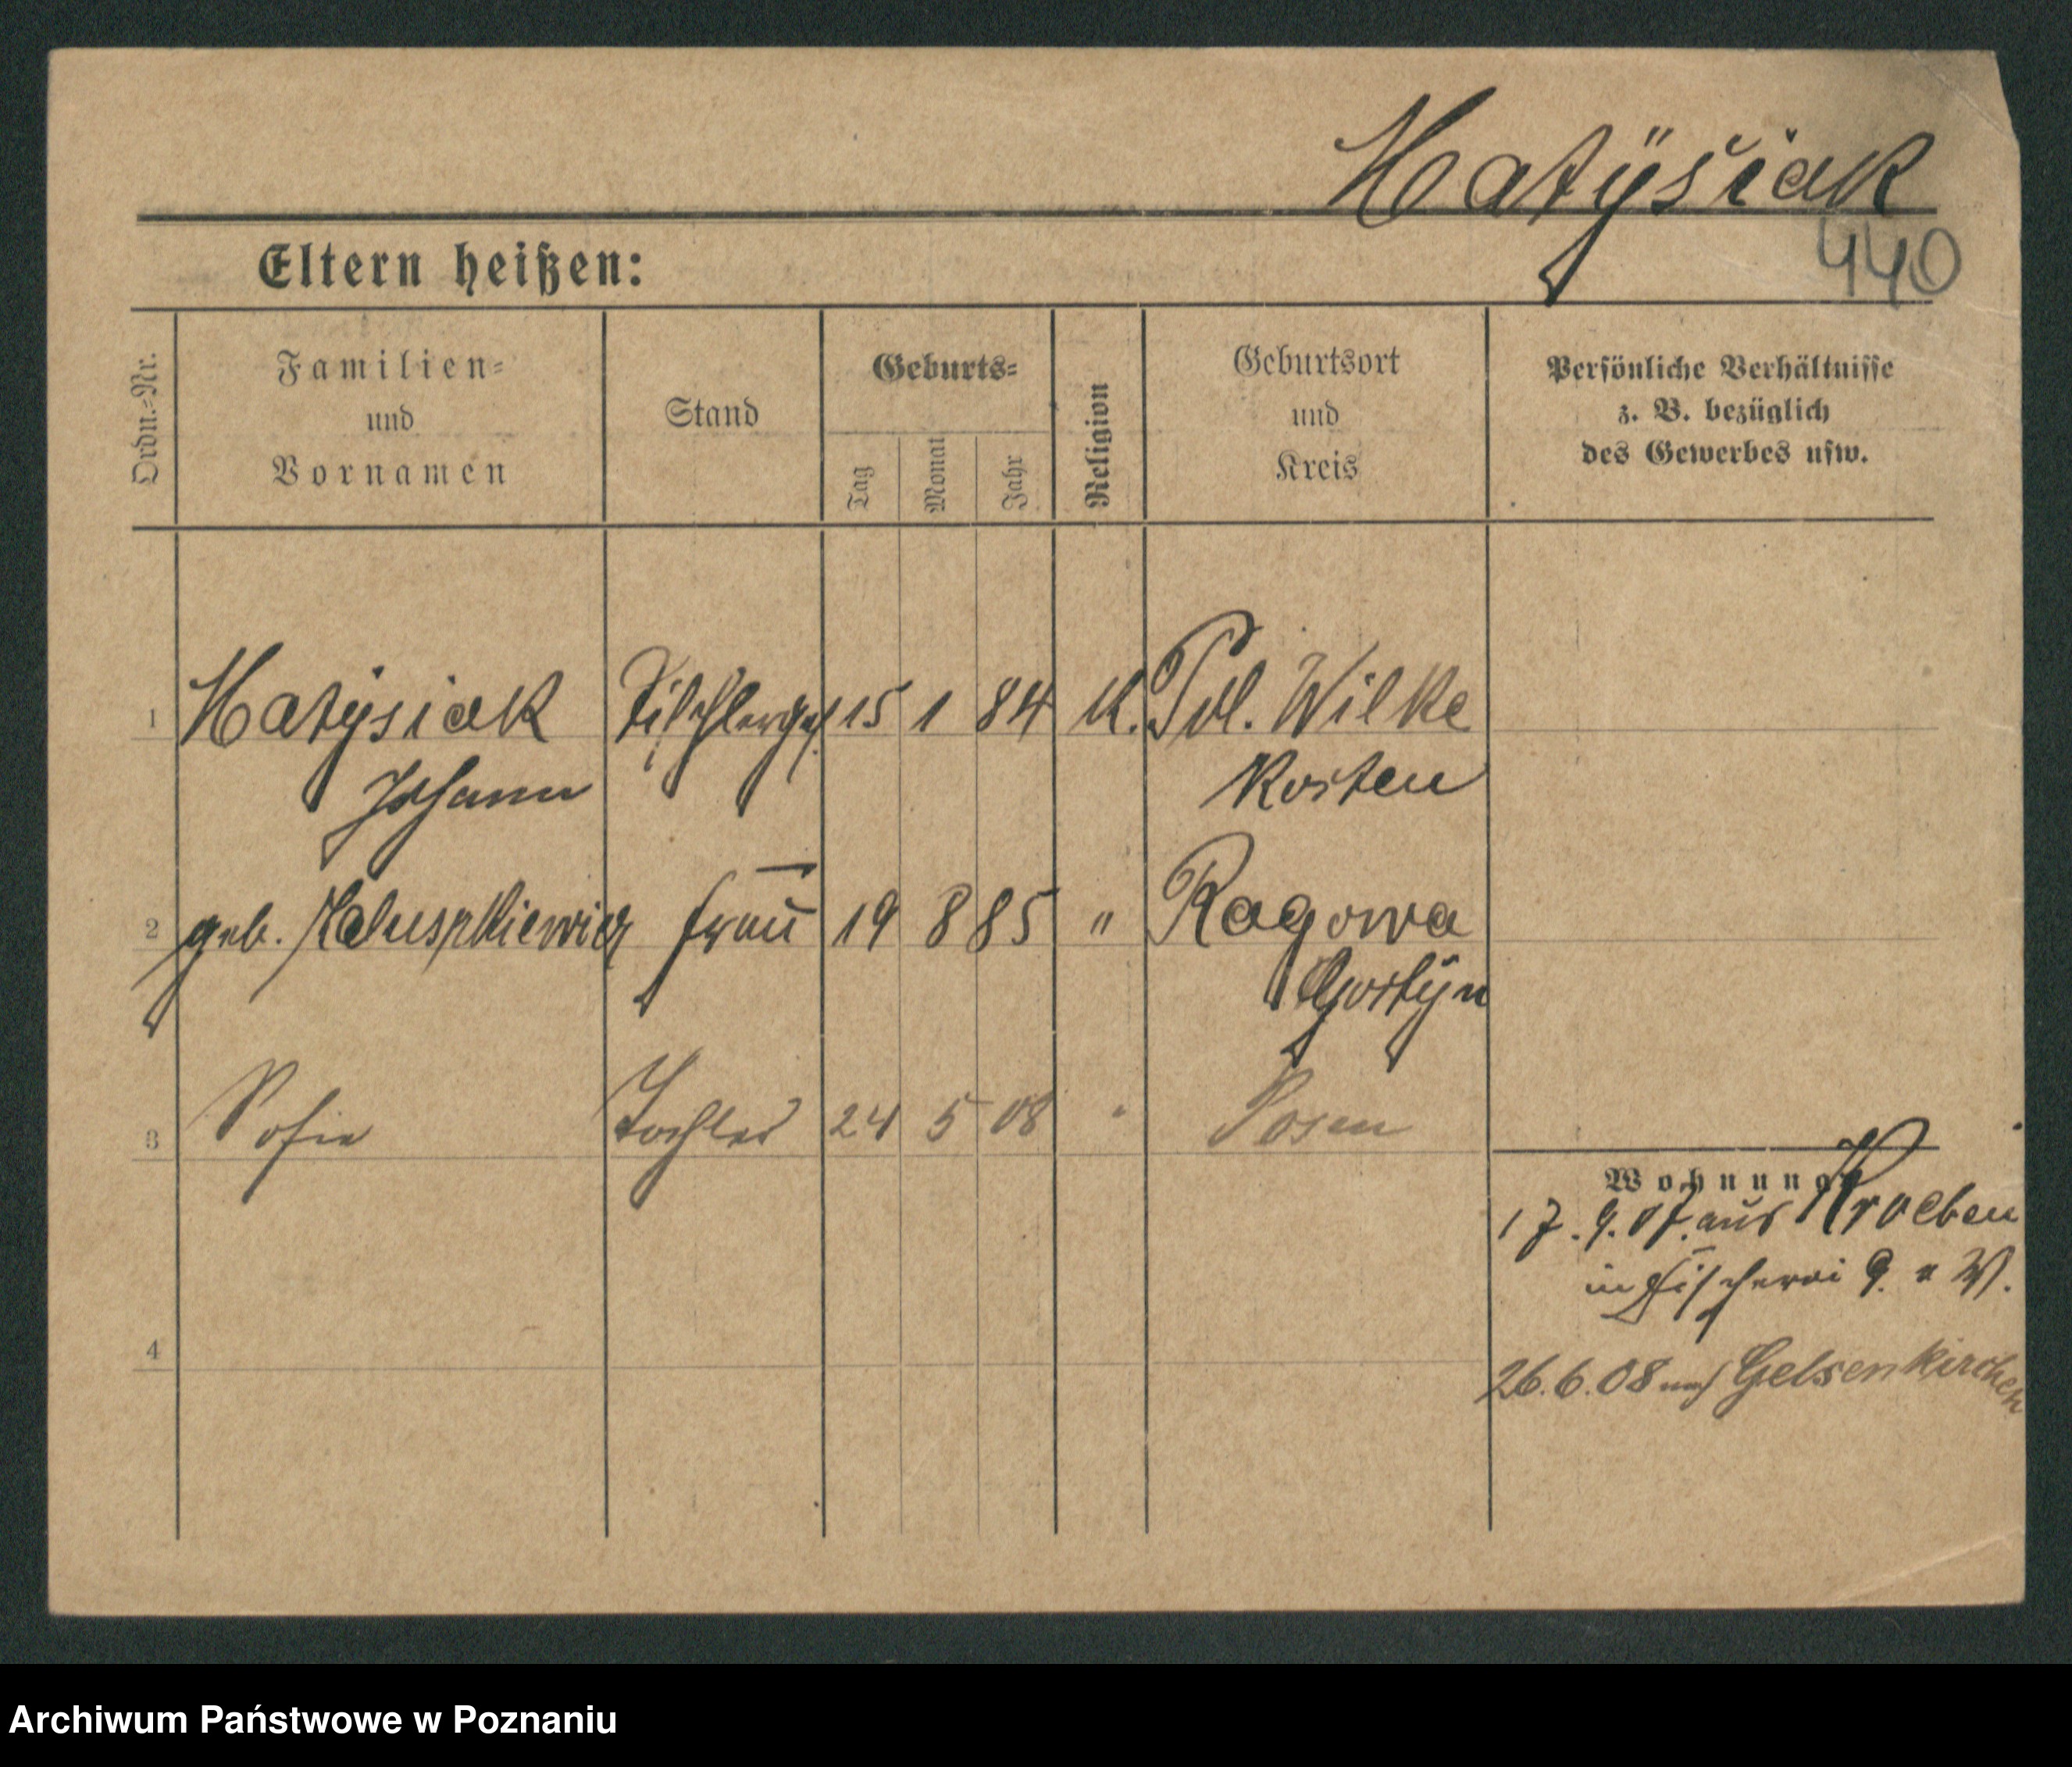 Matÿsiak
440
Eltern heißen:
Ordn.-Nr.
Familien-
und
Vornamen
Stand
Geburts-
Tag
Monat
Jahr
Religion
Geburtsort
und
Kreis
Persönliche Verhältnisse
z. B. bezüglich
des Gewerbes usw.
1 Matysiak Tischlerges. 15 1 84 K. Pol. Wilke
Johann Kosten
2 geb. Frau 19 8 85 " Ragowa
Gostÿn
3 Sofie Tochter 24 5 08 " Posen
Wohnung
17. 9. 07. aus Kroeben
in Fischerei 9. a W.
4
26. 6. 08 nach Gelsenkirchen
Archiwum Państwowe w Poznaniu